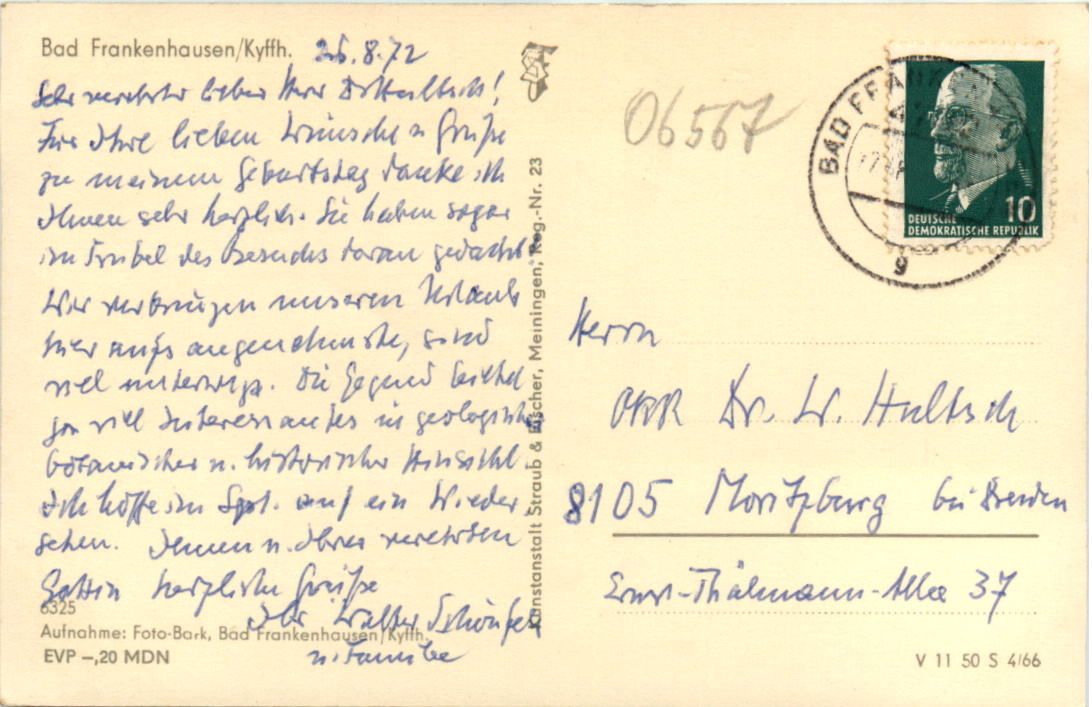 Bad Frankenhausen/Kyffh. 26.8.72
Sehr verehrter lieber Herr Dr. Hultsch!
Für Ihre lieben Wünsche u. Grüße
zu meinem Geburtstag danke ich
Ihnen sehr herzlich. Sie haben sogar
im Trubel des Besuches daran gedacht!
Wir verbringen unseren Urlaub
hier aufs angenehmste, sind
viel unterwegs. Die Gegend bietet
ja viel Interessantes in geologischer
botanischer u. historischer Hinsicht.
Ich hoffe im Spt. auf ein Wieder
sehen. Ihnen u. Ihrer verehrten
Gattin herzliche Grüße
Ihr Walter
u. Familie
6325
Aufnahme: Foto-Bark, Bad Frankenhausen/Kyffh.
EVP –,20 MDN
Kunstanstalt Straub & Fischer, Meiningen, Reg.-Nr. 23
06567
BAD FRANK
g
10
DEUTSCHE
DEMOKRATISCHE REPUBLIK
Herrn
Dr. W. Hultsch
8105 Moritzburg bei Dresden
Ernst-Thälmann-Allee 37
V 11 50 S 4/66